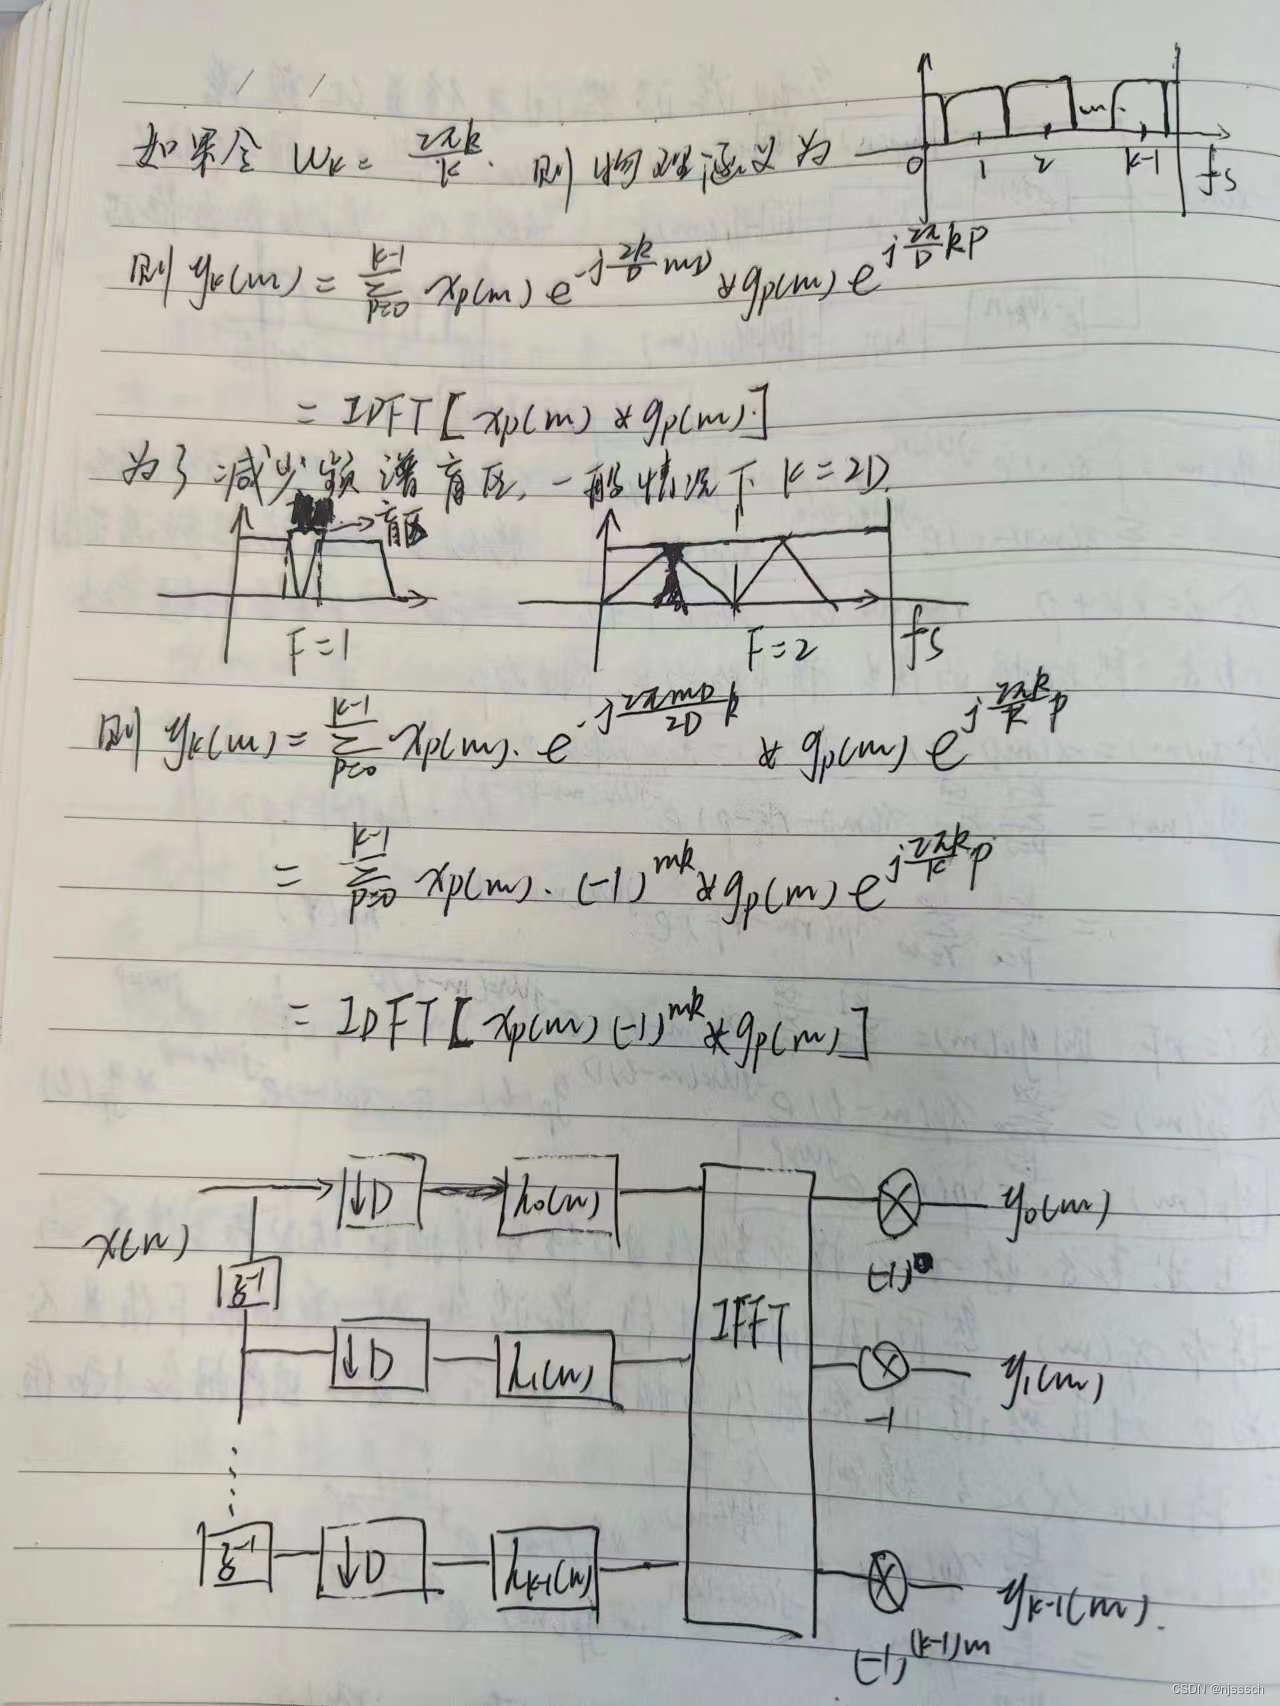 如果令 ωk = 2πk/K. 则物理涵义为
0 1 2 ... k-1 fs
则 yk(m) = Σ_{p=0}^{k-1} xp(m) e^{-j 2k/D mD} * gp(m) e^{j 2π/D kp}
= IDFT[xp(m) * gp(m)]
为了减少频谱盲区, 一般情况下 K=2D.
→盲区
F=1 F=2 fs
则 yk(m) = Σ_{p=0}^{k-1} xp(m). e^{-j 2πmD/2D k} * gp(m) e^{j 2πk/K p}
= Σ_{p=0}^{k-1} xp(m). (-1)^{mk} * gp(m) e^{j 2πk/K p}
= IDFT[xp(m) (-1)^{mk} * gp(m)]
x(n) ↓D h0(m) y0(m)
z^{-1} (-1)^0
IFFT
↓D h1(m) y1(m)
-1
z^{-1} ↓D hk-1(m) yk-1(m).
(-1)^{(k-1)m}
CSDN @njsssch